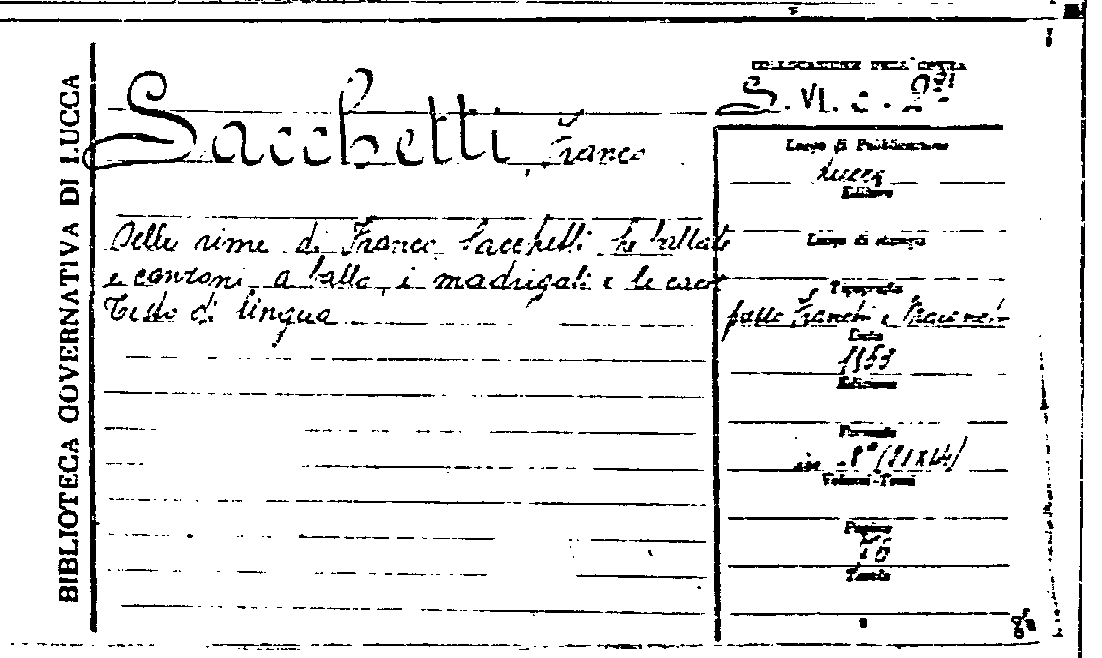 BIBLIOTECA GOVERNATIVA DI LUCCA
COLLOCAZIONE DELL'OPERA
S. VI. c.
Sacchetti, Franco
Delle rime di Franco Sacchetti le ballate
e canzoni a ballo, i madrigali e le cacce
Testo di lingua
Luogo di Pubblicazione
Lucca
Editore
Luogo di stampa
Tipografia
Franchi e Maionchi
Data
1853
Edizione
Formato
in 8° (21x14)
Volumi-Tomi
Pagine
Tavole